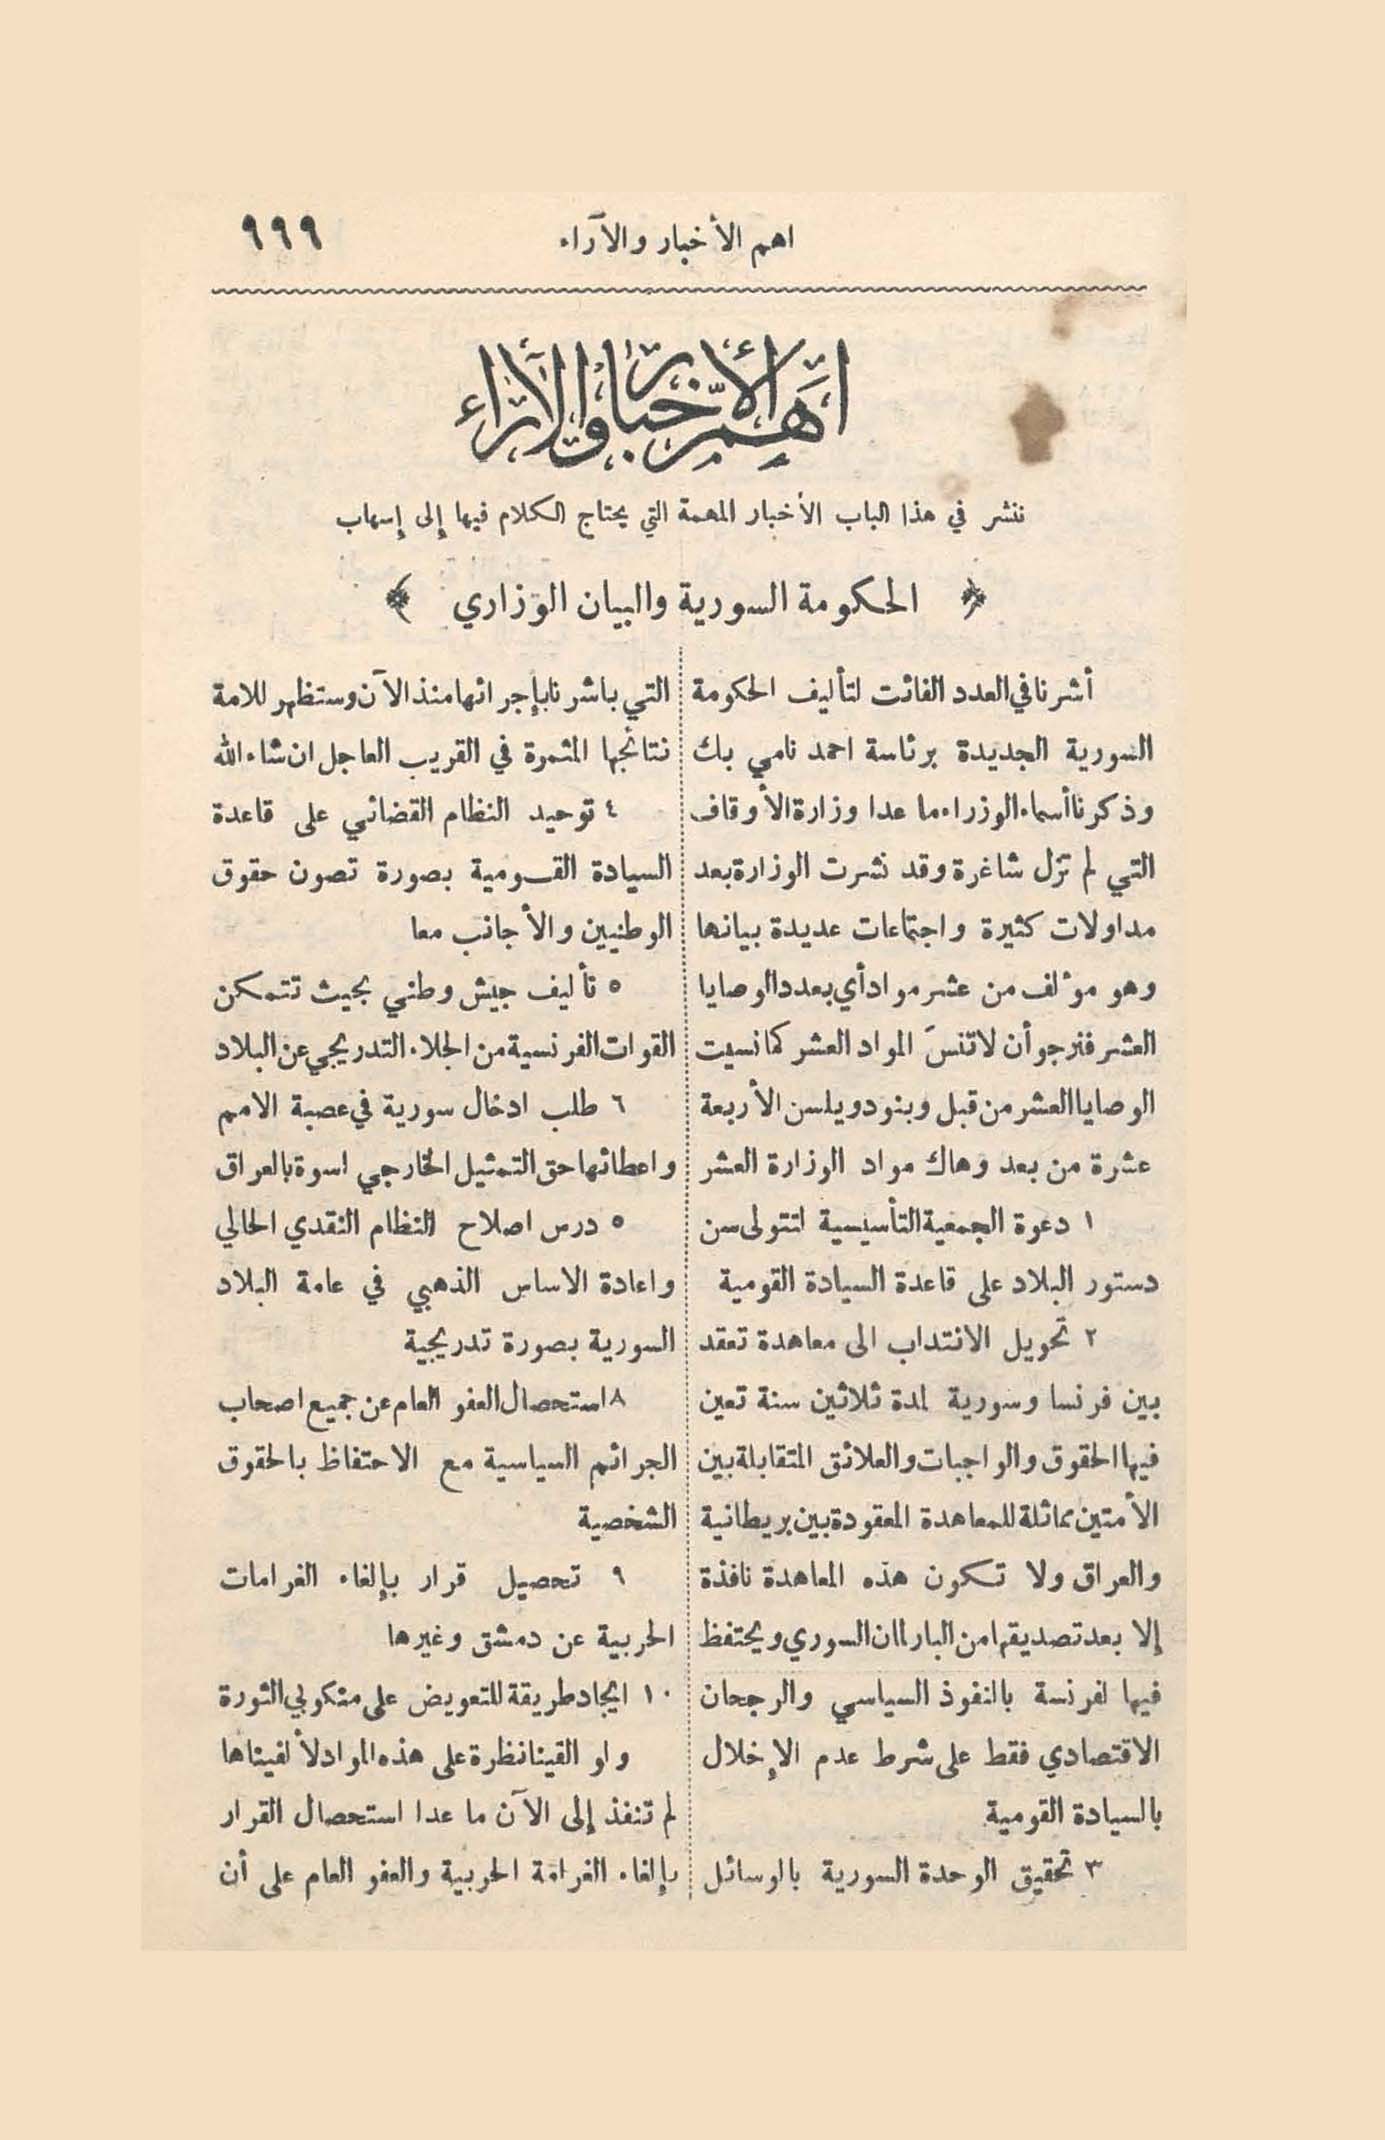 اهم الأخبار والآراء
٩٩٩
أهم الأخبار والآراء
ننشر في هذا الباب الأخبار المهمة التي يحتاج الكلام فيها إلى إسهاب
﴿ الحكومة السورية والبيان الوزاري ﴾
أشرنا في العدد الفائت لتأليف الحكومة
السورية الجديدة برئاسة احمد نامي بك
وذكرنا أسماء الوزراء ما عدا وزارة الأوقاف
التي لم تزل شاغرة وقد نشرت الوزارة بعد
مداولات كثيرة واجتماعات عديدة بيانها
وهو مؤلف من عشر مواد أي بعدد الوصايا
العشر فنرجو أن لا تنسَ المواد العشر كما نسيت
الوصايا العشر من قبل وبنود ويلسن الأربعة
عشرة من بعد وهاك مواد الوزارة العشر
١ دعوة الجمعية التأسيسية لتتولى سن
دستور البلاد على قاعدة السيادة القومية
٢ تحويل الانتداب الى معاهدة تعقد
بين فرنسا وسورية لمدة ثلاثين سنة تعين
فيها الحقوق والواجبات والعلائق المتقابلة بين
الأمتين مماثلة للمعاهدة المعقودة بين بريطانية
والعراق ولا تكون هذه المعاهدة نافذة
إلا بعد تصديقها من البارلمان السوري ويحتفظ
فيها لفرنسة بالنفوذ السياسي والرجحان
الاقتصادي فقط على شرط عدم الإخلال
بالسيادة القومية
٣ تحقيق الوحدة السورية بالوسائل
التي باشرنا بإجرائها منذ الآن وستظهر للامة
نتائجها المثمرة في القريب العاجل ان شاء الله
٤ توحيد النظام القضائي على قاعدة
السيادة القومية بصورة تصون حقوق
الوطنيين والأجانب معا
٥ تأليف جيش وطني بحيث تتمكن
القوات الفرنسية من الجلاء التدريجي عن البلاد
٦ طلب ادخال سورية في عصبة الامم
واعطائها حق التمثيل الخارجي اسوة بالعراق
٥ درس اصلاح النظام النقدي الحالي
واعادة الاساس الذهبي في عامة البلاد
السورية بصورة تدريجية
٨ استحصال العفو العام عن جميع اصحاب
الجرائم السياسية مع الاحتفاظ بالحقوق
الشخصية
٩ تحصيل قرار بإلغاء الغرامات
الحربية عن دمشق وغيرها
١٠ ايجاد طريقة للتعويض على منكوبي الثورة
ولو القينا نظرة على هذه المواد لألفيناها
لم تنفذ إلى الآن ما عدا استحصال القرار
بإلغاء الغرامة الحربية والعفو العام على أن